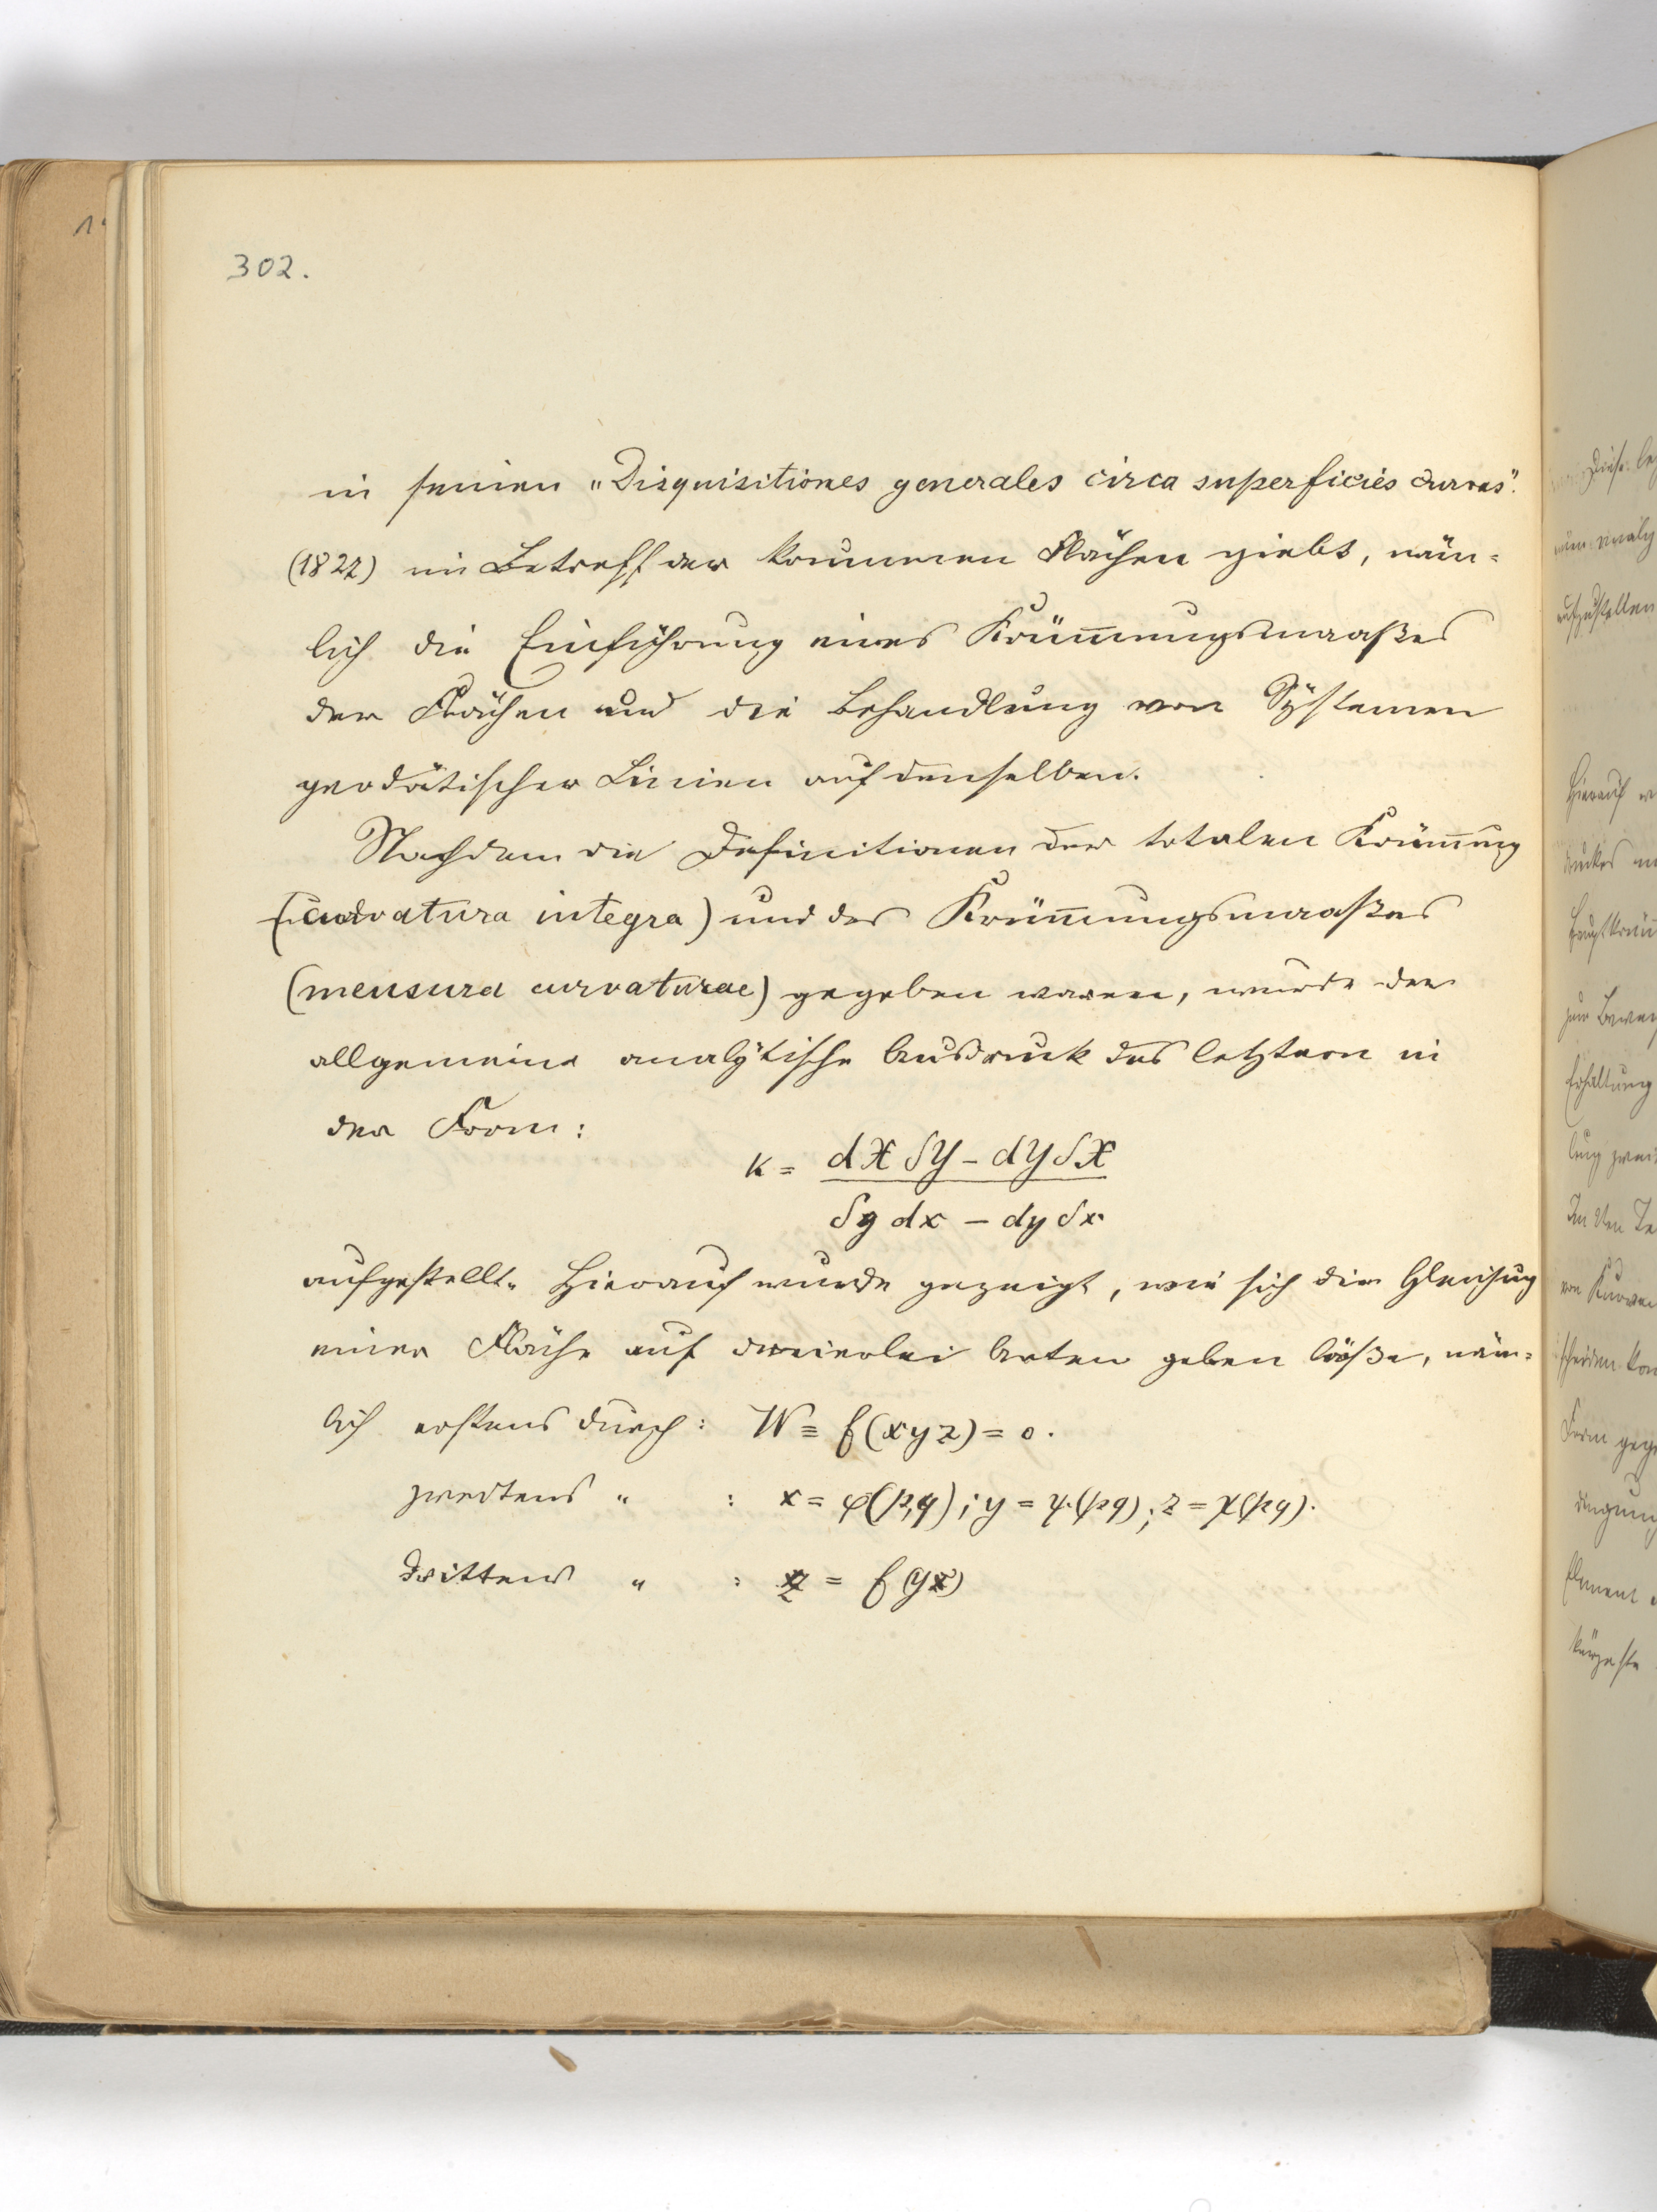 302.
in seinen „Disquisitiones generales circa superficies curvas".
(1827) in Betreff der krummen Flächen giebt, näm-
lich die Einführung eines Krüm̄ungsmaaßes
der Flächen und die Behandlung von Systemen
geodätischer Linien auf denselben.
Nachdem die Definitionen der totalen Krüm̄ung
(curvatura integra) und des Krüm̄ungsmaaßes
(mensura curvaturae) gegeben waren, wurde der
allgemeine analytische Ausdruck des letztern in
der Form:
k = dX δY – dY δX
δy dx – dy δx
aufgestellt. Hierauf wurde gezeigt, wie sich die Gleichung
einer Fläche auf dreierlei Arten geben läßt, näm-
lich erstens durch: W ≡ f(xyz) = 0.
zweitens „ : x = φ(p,q); y = ψ(pq); z = χ(pq).
drittens „ : z = f(yx)